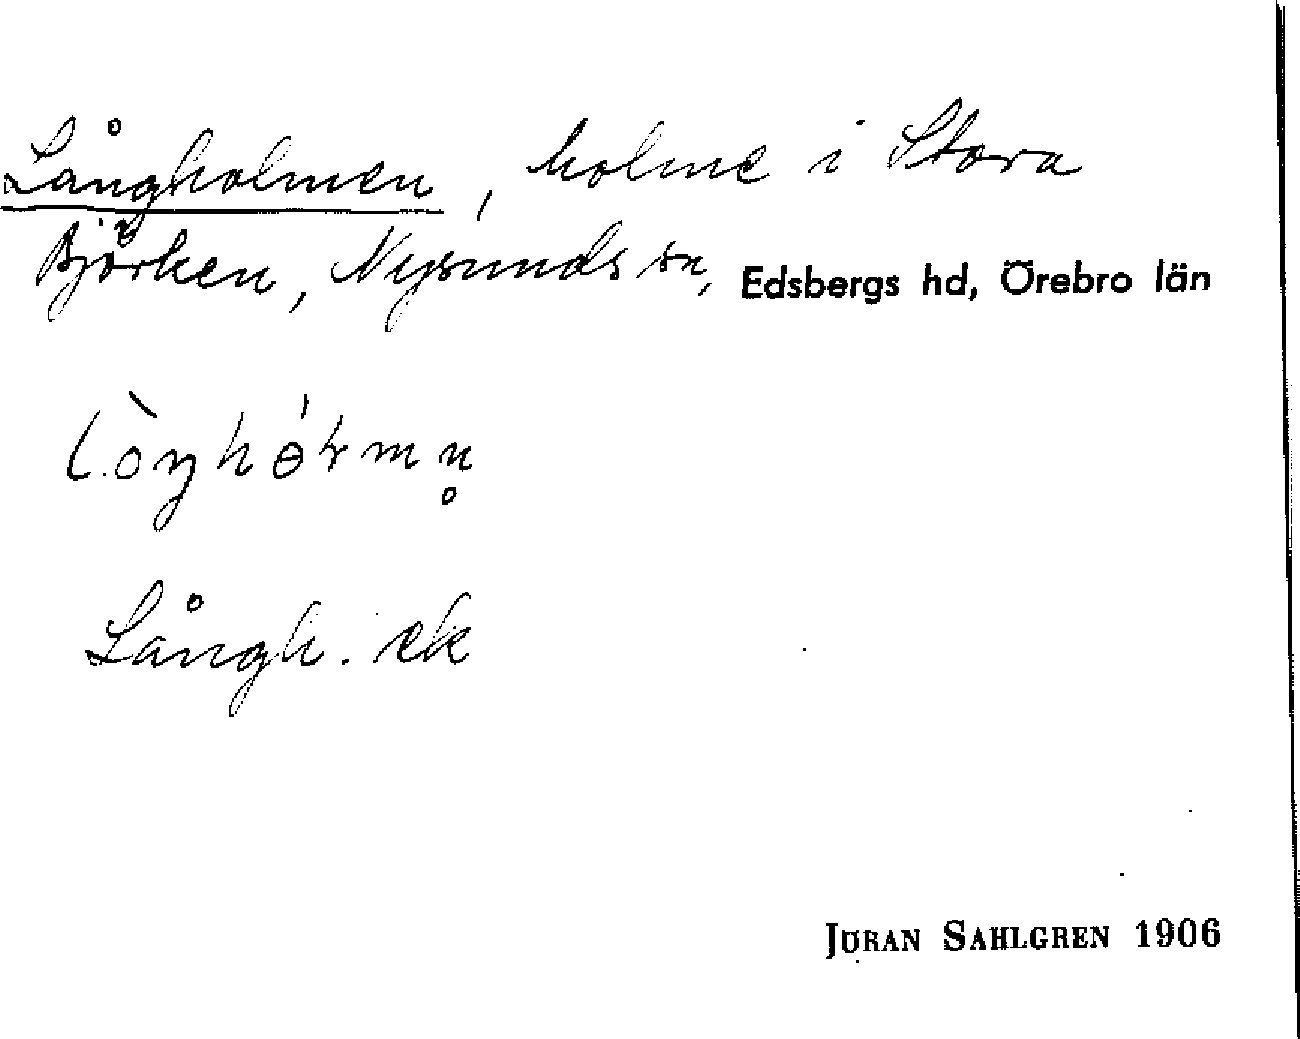 Långholmen, holme i Stora
Björken, Nysunds sn, Edsbergs hd, Örebro län
Långh. ek
JÖRAN SAHLGREN 1906